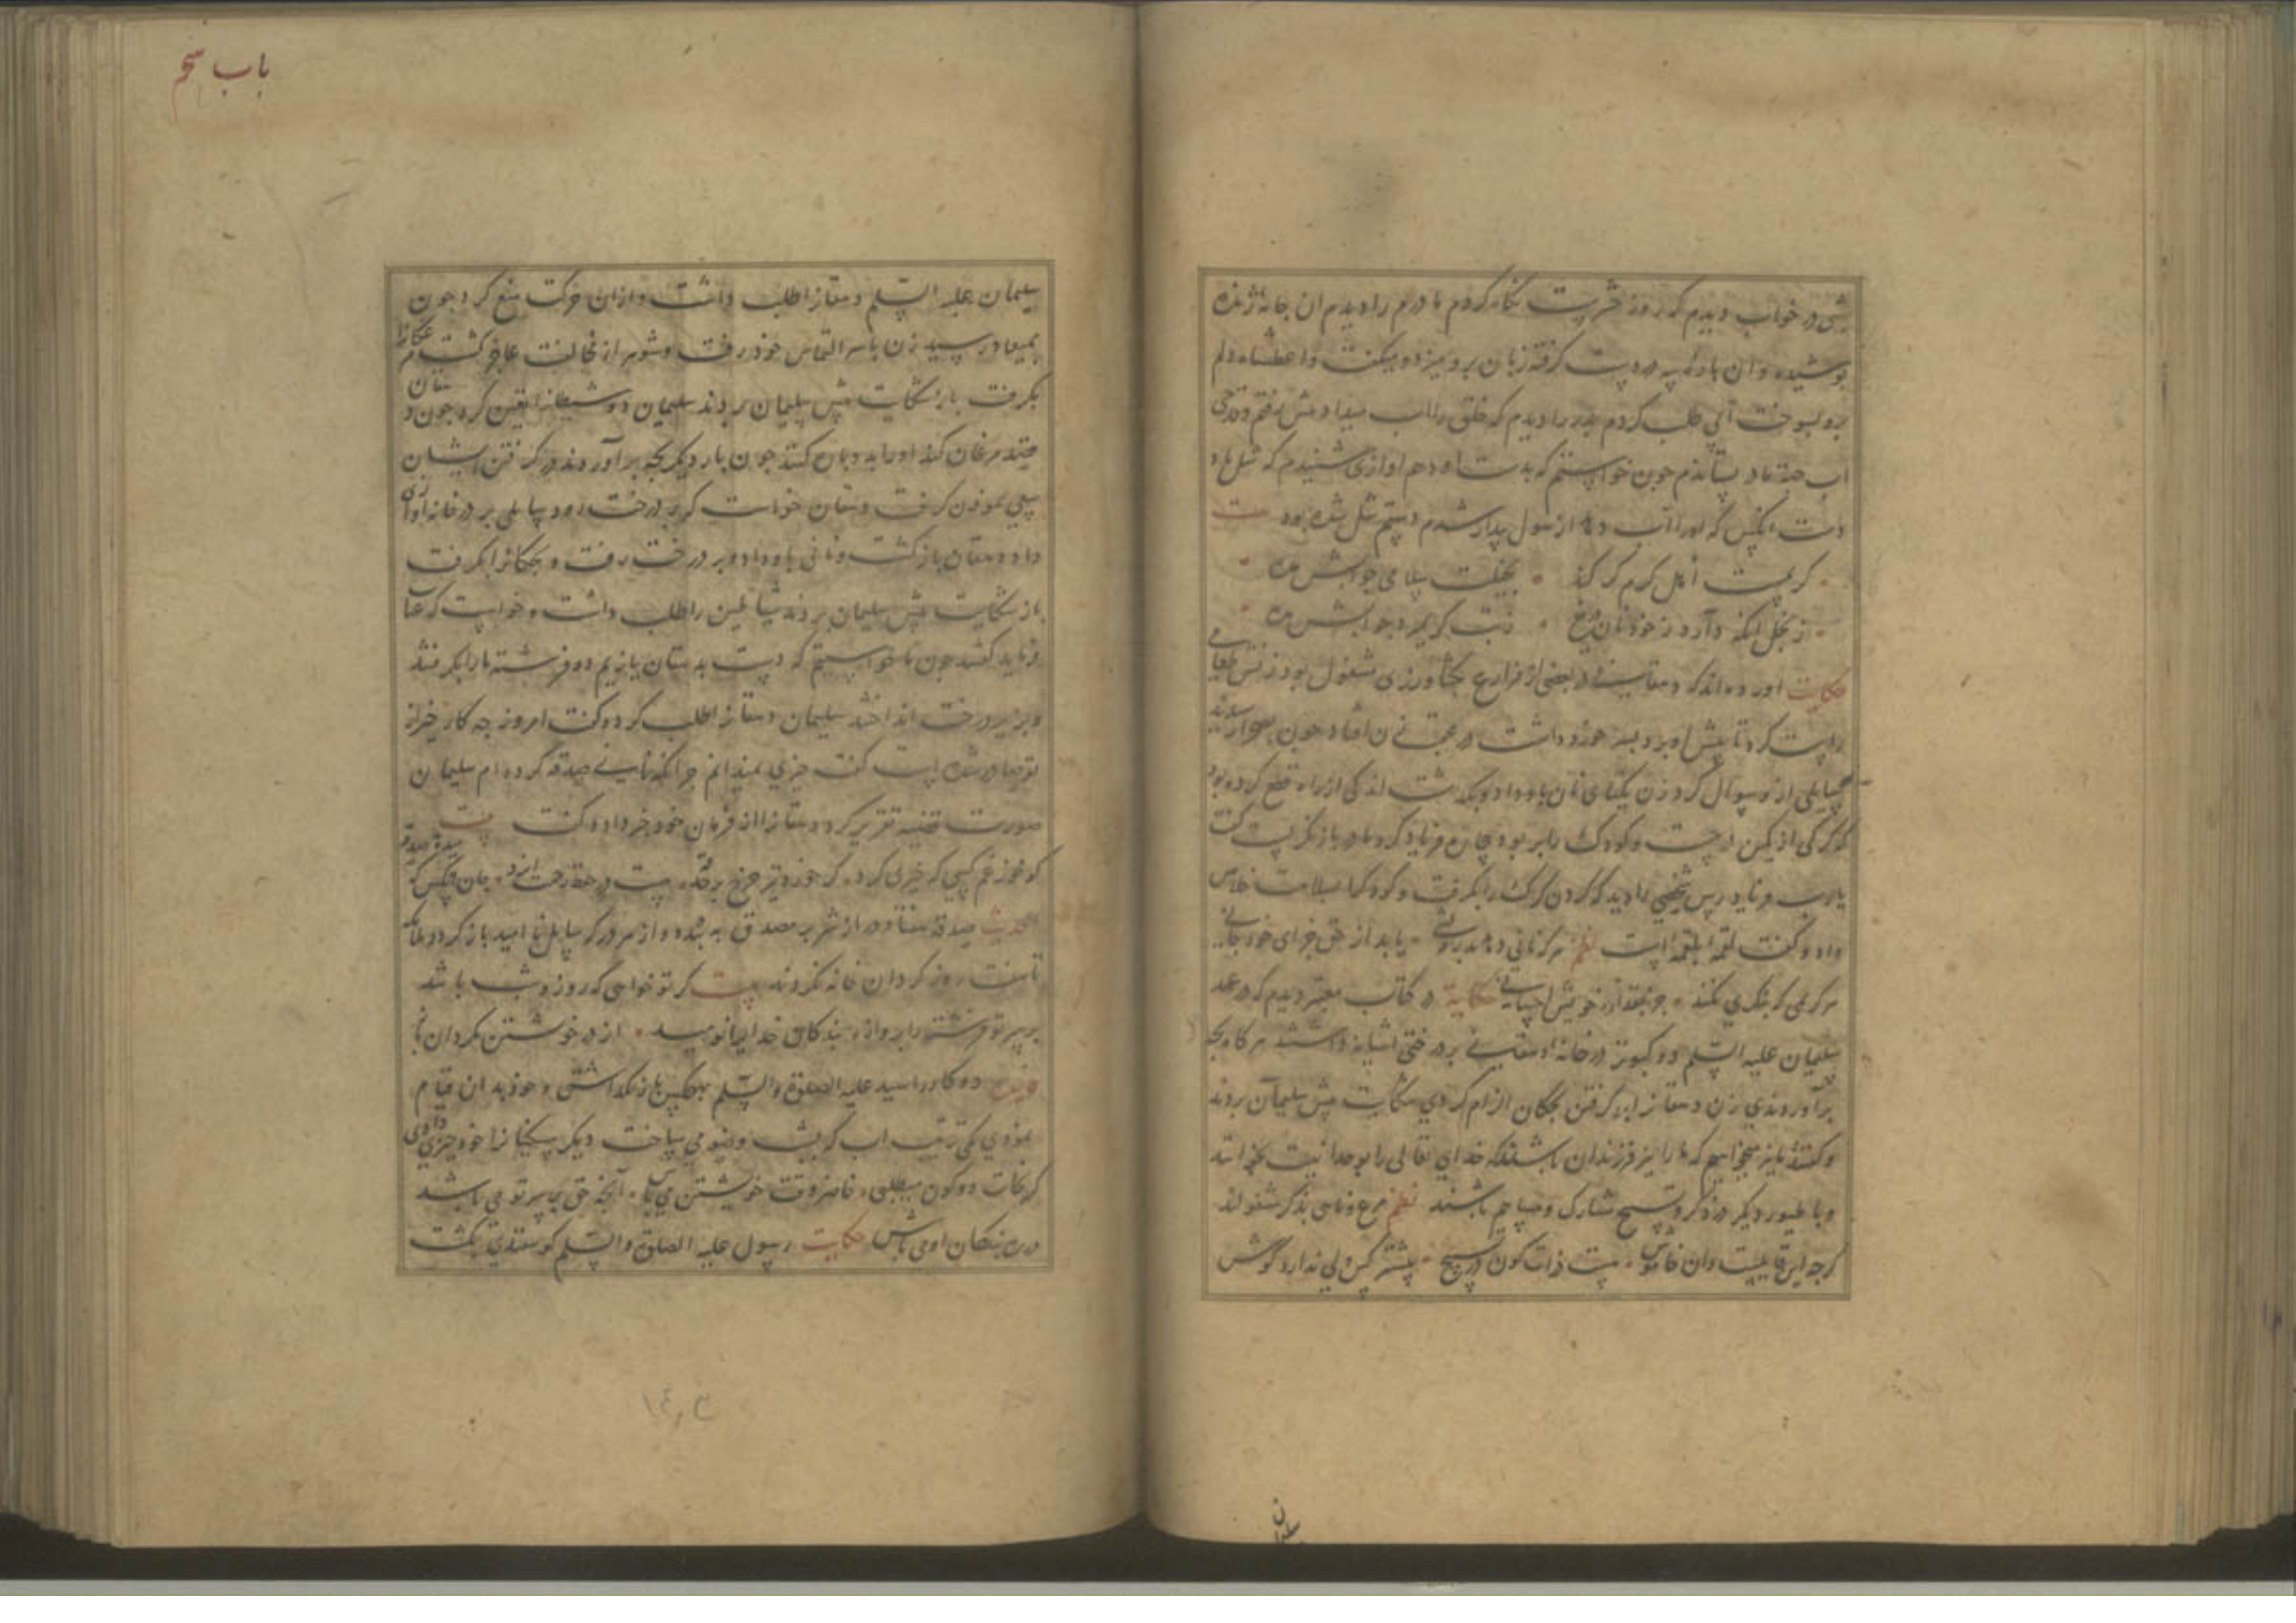 شبی در خواب دیدم که روز حشرست نکاه کردم مادرم را دیدم ان جامه ژنده
پوشیده و ان پاره پیه در دست کرفته زبان برو میزد و میکفت واعطشاه دلم
برو بسوخت آبی طلب کردم پدر را دیدم که خلق را اب میداد پیش رفتم و قدحی
اب جهة مادر بستاندم جون خواستم که بدست او دهم اوازی شنیدم که شل باد
دست انکس که او را اب دهد از هول بیدار شدم دستم شل شده بود بیت
کریمست اهل کرم کر کند بخیلت سلامی جوابش مده
ز بخل انکه دارد ز خود نان دریغ
حکایت اورده اند که دهقانی در بعضی از مزارع بکشاورزی مشغول بود زنش طعامی
راست کرد تا پیش او برد پسر خرد داشت در عقب زن افتاد جون بصحرا رسیدند
سایلی از و سوال کرد زن یکتای نان باو داد و بکذشت اندکی از راه قطع کرده بود
که کرکی از کمین برجست و کودک را بربود بیچاره فریاد کرد مادر باز نکریست کفت
یارب فریاد رس شخصی را دید که کردن کرک را بکرفت و کودک را بسلامت خلاص
داد و کفت لقمة بلقمة است نظم هر که نانی دهد بدرویشی یابد از حق جزای خود جانی
هر کرمی که بنکری بکند جز بمقدار خویش احسانی حکایة در کتاب معتبر دیدم که در عهد
سلیمان علیه السلم دو کبوتر در خانه دهقانی بر درختی اشیانه داشتند هرکاه بجه
برآوردندی زن دهقانرا بر کرفتن بجکان الزام کردی شکایت پیش سلیمان بردند
و کفتند ما نیز میخواهیم که ما را نیز فرزندان باشند که خدای تعالی را بوحدانیت بخوانند
و با طیور دیکر در ذکر و تسبیح مشارک و مساهم باشند نظم مرغ و ماهی بذکر مشغولند
کرجه این قایلیست وان خاموش هست ذرات کون در تسبیح بیشتر کس ولی ندارد کوش
باب پنجم
سلیمان علیه السلم دهقانرا طلب داشت و از ان حرکت منع کرد جون
بمیعاد رسید زن با سر التماس خود رفت و شوهر از مخالفت عاجز کشت
بکرفت باز شکایت پیش سلیمان بردند سلیمان دو شیطانرا تعین کرد جون دهقان
قصد مرغان کند او را بدو پاره کنند جون بار دیکر بجه برآوردند در کرفتن ایشان
سعی نمودن کرفت دهقان خواست که بر درخت رود سایلی بر در خانه آوازی
داد دهقان بازکشت و نانی باو داد و بر درخت رفت و بجکانرا بکرفت
باز شکایت پیش سلیمان بردند شیاطین را طلب داشت و خواست که عتاب
فرماید کفتند جون ما خواستیم که دست بدهقان یازیم دو فرشته ما را بکرفتند
و بزیر درخت انداختند سلیمان دهقانرا طلب کرد و کفت امروز جه کار خیر از
تو صادر شده است کفت جیزی نمیدانم جز انکه نانی صدقه کرده ام سلیمان
صورت قضیه تقریر کرد و دهقانرا از فرمان خود خبر داد و کفت بیت
الحدیث صدقه هفتاد در از شر بر مصدق به بندد و از هر در که سایل نا امید باز کردد ملایکه
تا هفت روز کردان خانه نکردند بیت کر تو خواهی که روز و شب باشد
بر سر تو فرشته را پرواز بندکان خدایرا نومید از در خویشتن مکردان باز
دو کار را سید علیه الصلوة والسلم بهیجکس باز نکذاشتی و خود بدان قیام
نمودی یکی ترتیب اب که بشب وضو می ساخت دیکر مسکینانرا خود جیزی دادی
کر نجات دو کون میطلبی حاضر وقت خویشتن می باش آنجه حق بر سر تو می باشد
بر سر بندکان او می پاش حکایت رسول علیه الصلوة والسلم کوسفندی بکشت
١٤٣